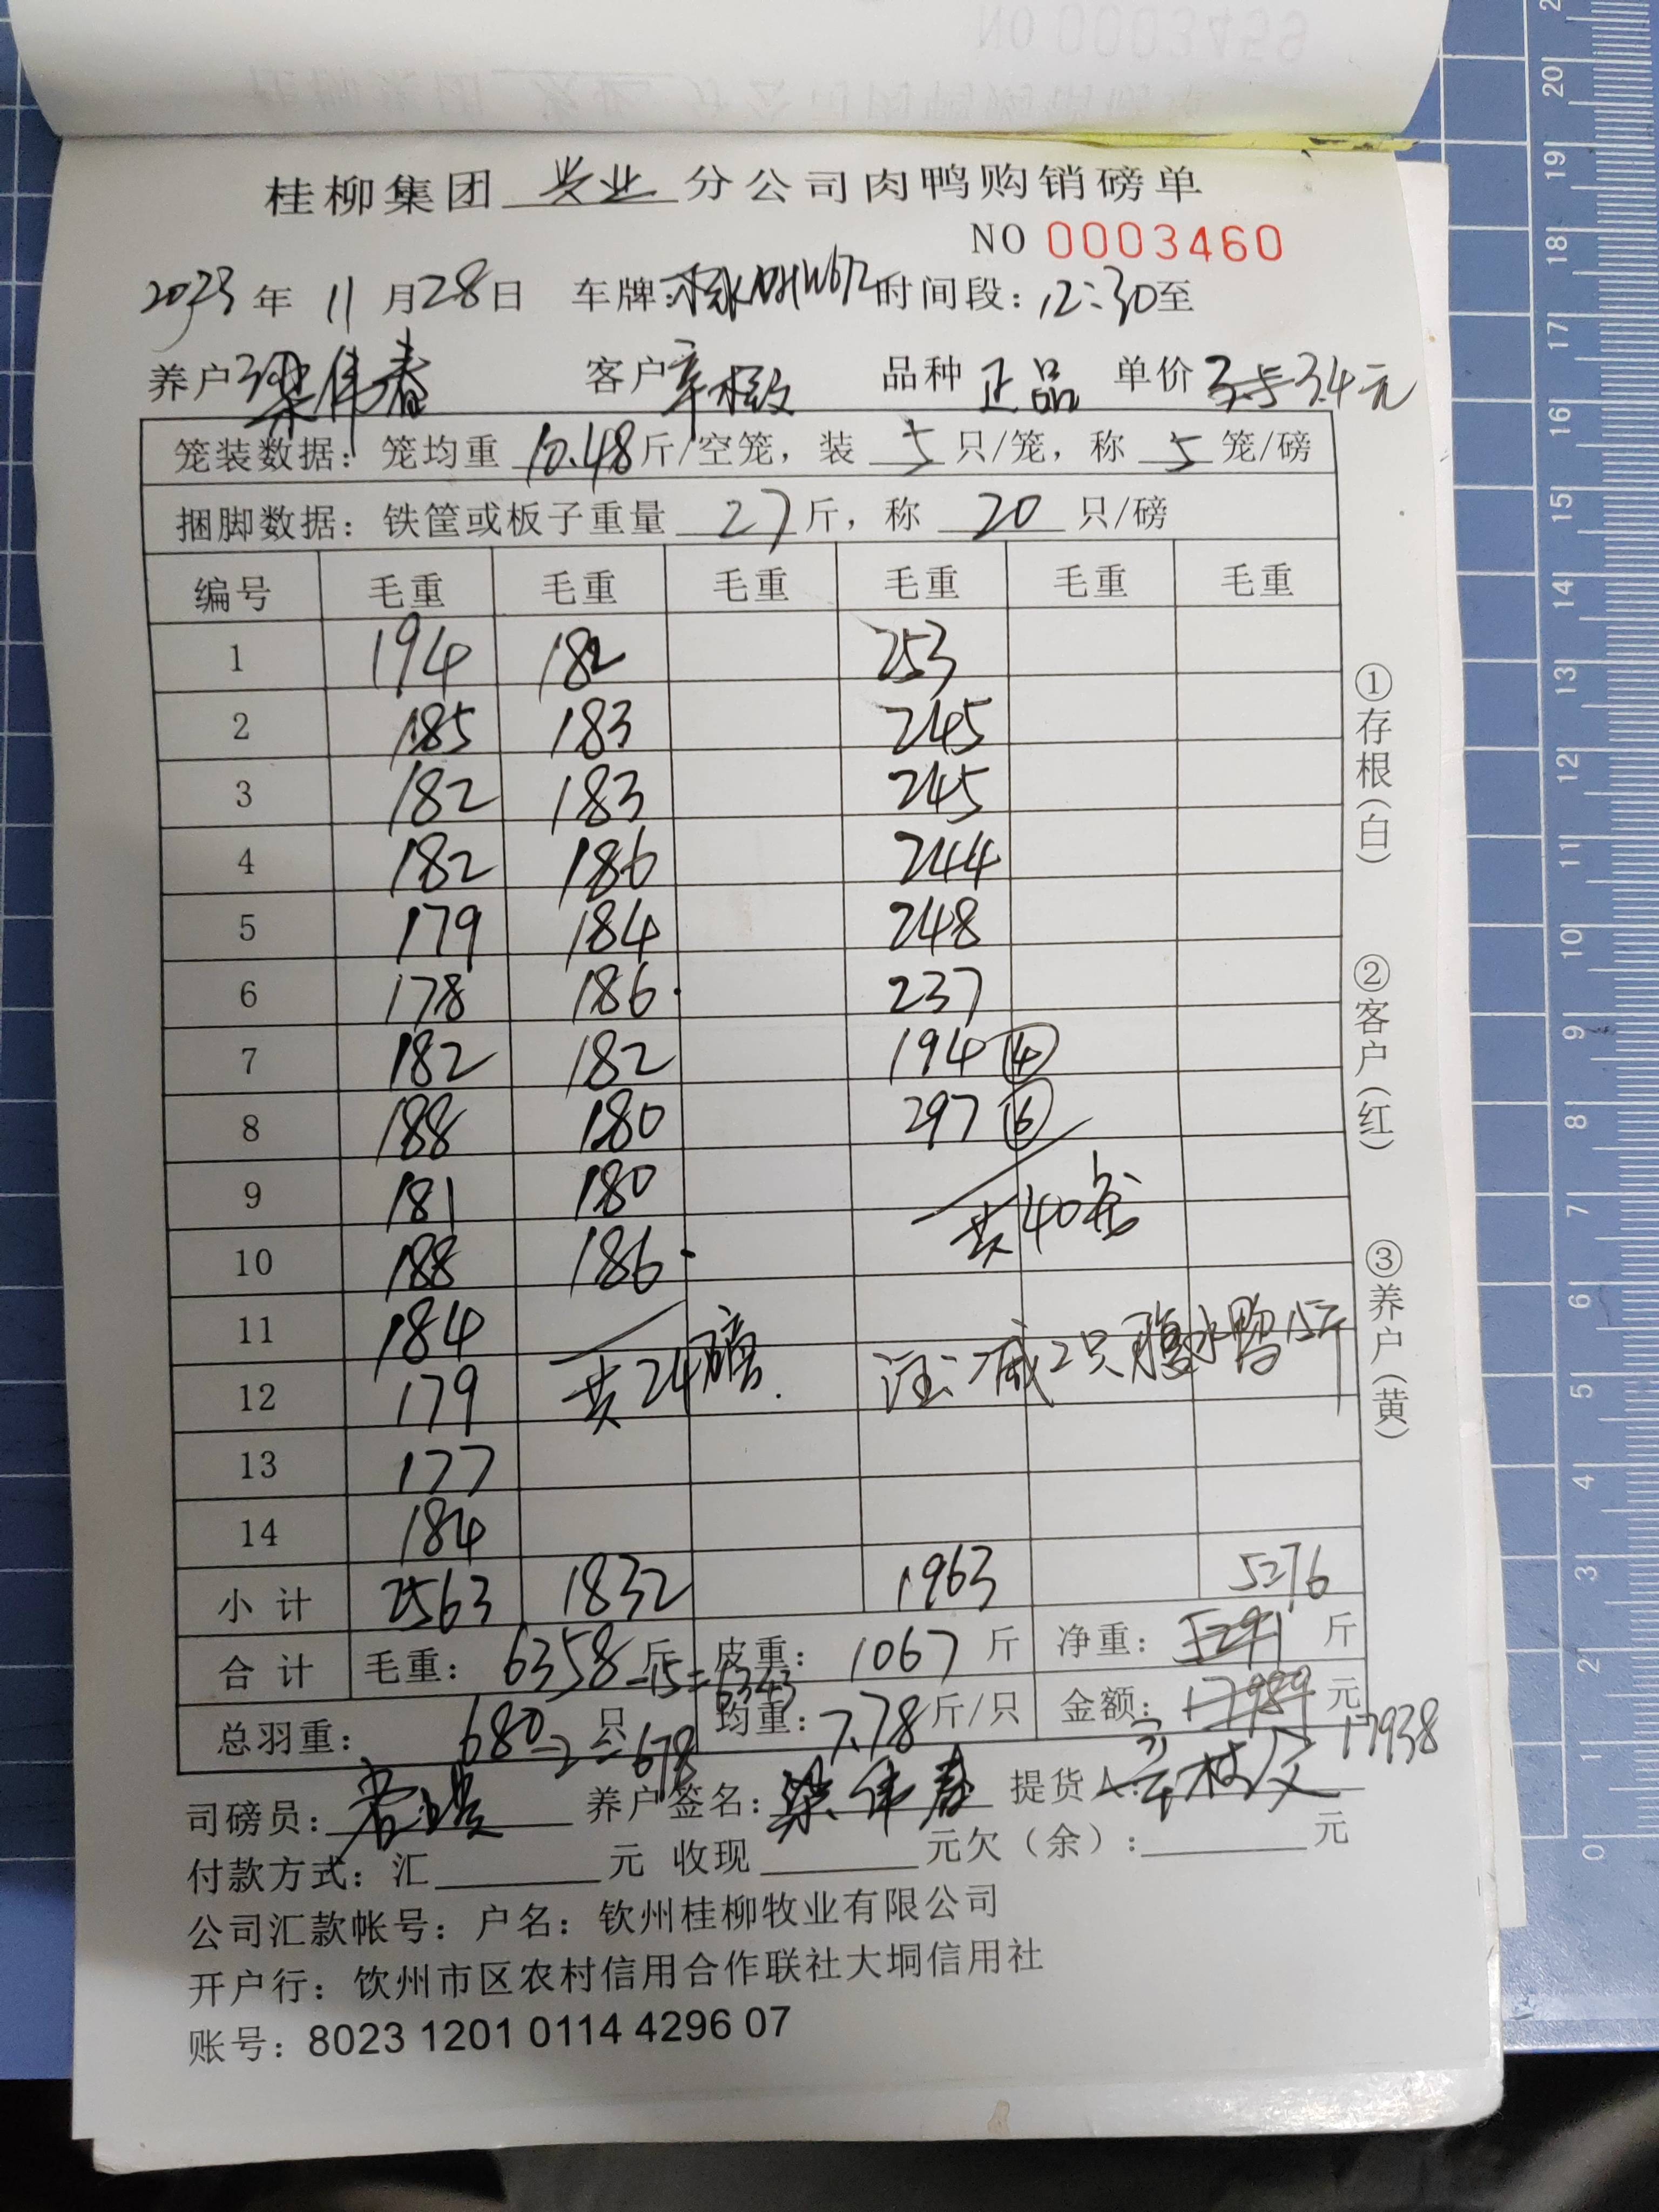 NO 0003459
桂柳集团 兴业 分公司肉鸭购销磅单
NO 0003460
2023 年 11 月 28 日 车牌: 时间段: 12:30 至
养户 梁伟春 客户 品种 正品 单价 3.5 3.4元
笼装数据: 笼均重 10.48 斤/空笼, 装 5 只/笼, 称 5 笼/磅
捆脚数据: 铁筐或板子重量 27 斤, 称 20 只/磅
编号 毛重 毛重 毛重 毛重 毛重 毛重
1 194 182 253
2 185 183 245
3 182 183 245
4 182 186 244
5 179 184 248
6 178 186. 237
7 182 182 194 ④
8 188 180 297 ⑥
9 181 180
共40条
10 188 186.
11 184
共24磅. 注:减2只腹水鸭15斤
12 179
13 177
14 184
小计 2563 1832 1963 5276
合计 毛重: 6358 斤 -15=6343 皮重: 1067 斤 净重: 5291 斤
总羽重: 680 只 -2=678 均重: 7.78 斤/只 金额: 17989 元 17938
司磅员: 养户签名: 梁伟春 提货人:
付款方式: 汇 元 收现 元欠(余): 元
公司汇款帐号: 户名: 钦州桂柳牧业有限公司
开户行: 饮州市区农村信用合作联社大垌信用社
账号: 8023 1201 0114 4296 07
①存根(白) ②客户(红) ③养户(黄)
20
19
18
17
16
15
14
13
12
11
10
9
8
7
6
5
4
3
2
1
0